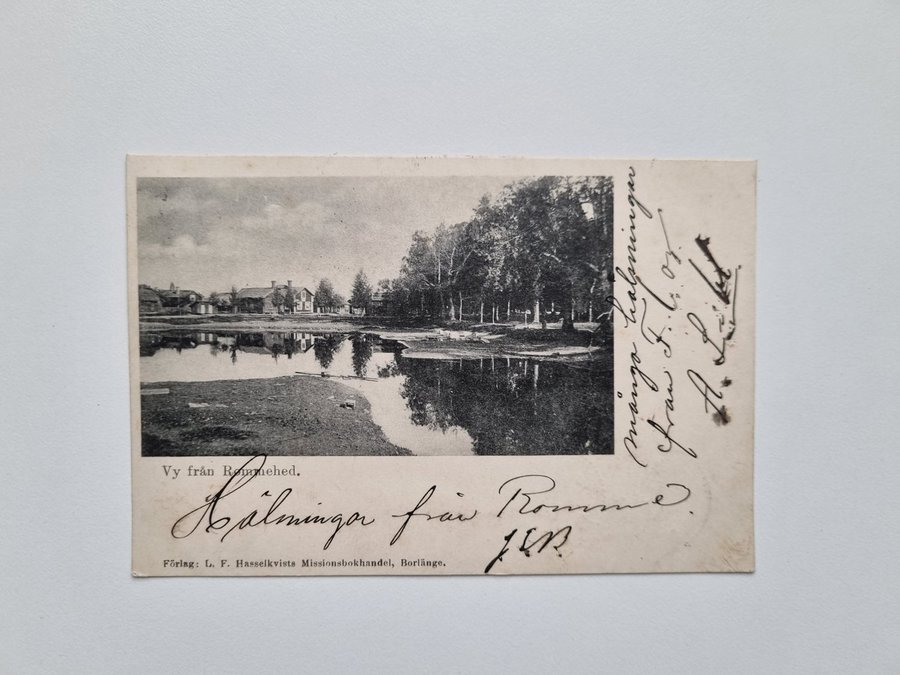 Vy från Rommehed.
Hälningar från Romme.
J.E.B.
Förlag: L. F. Hasselkvists Missionsbokhandel, Borlänge.
många hälningar
från F.
A.